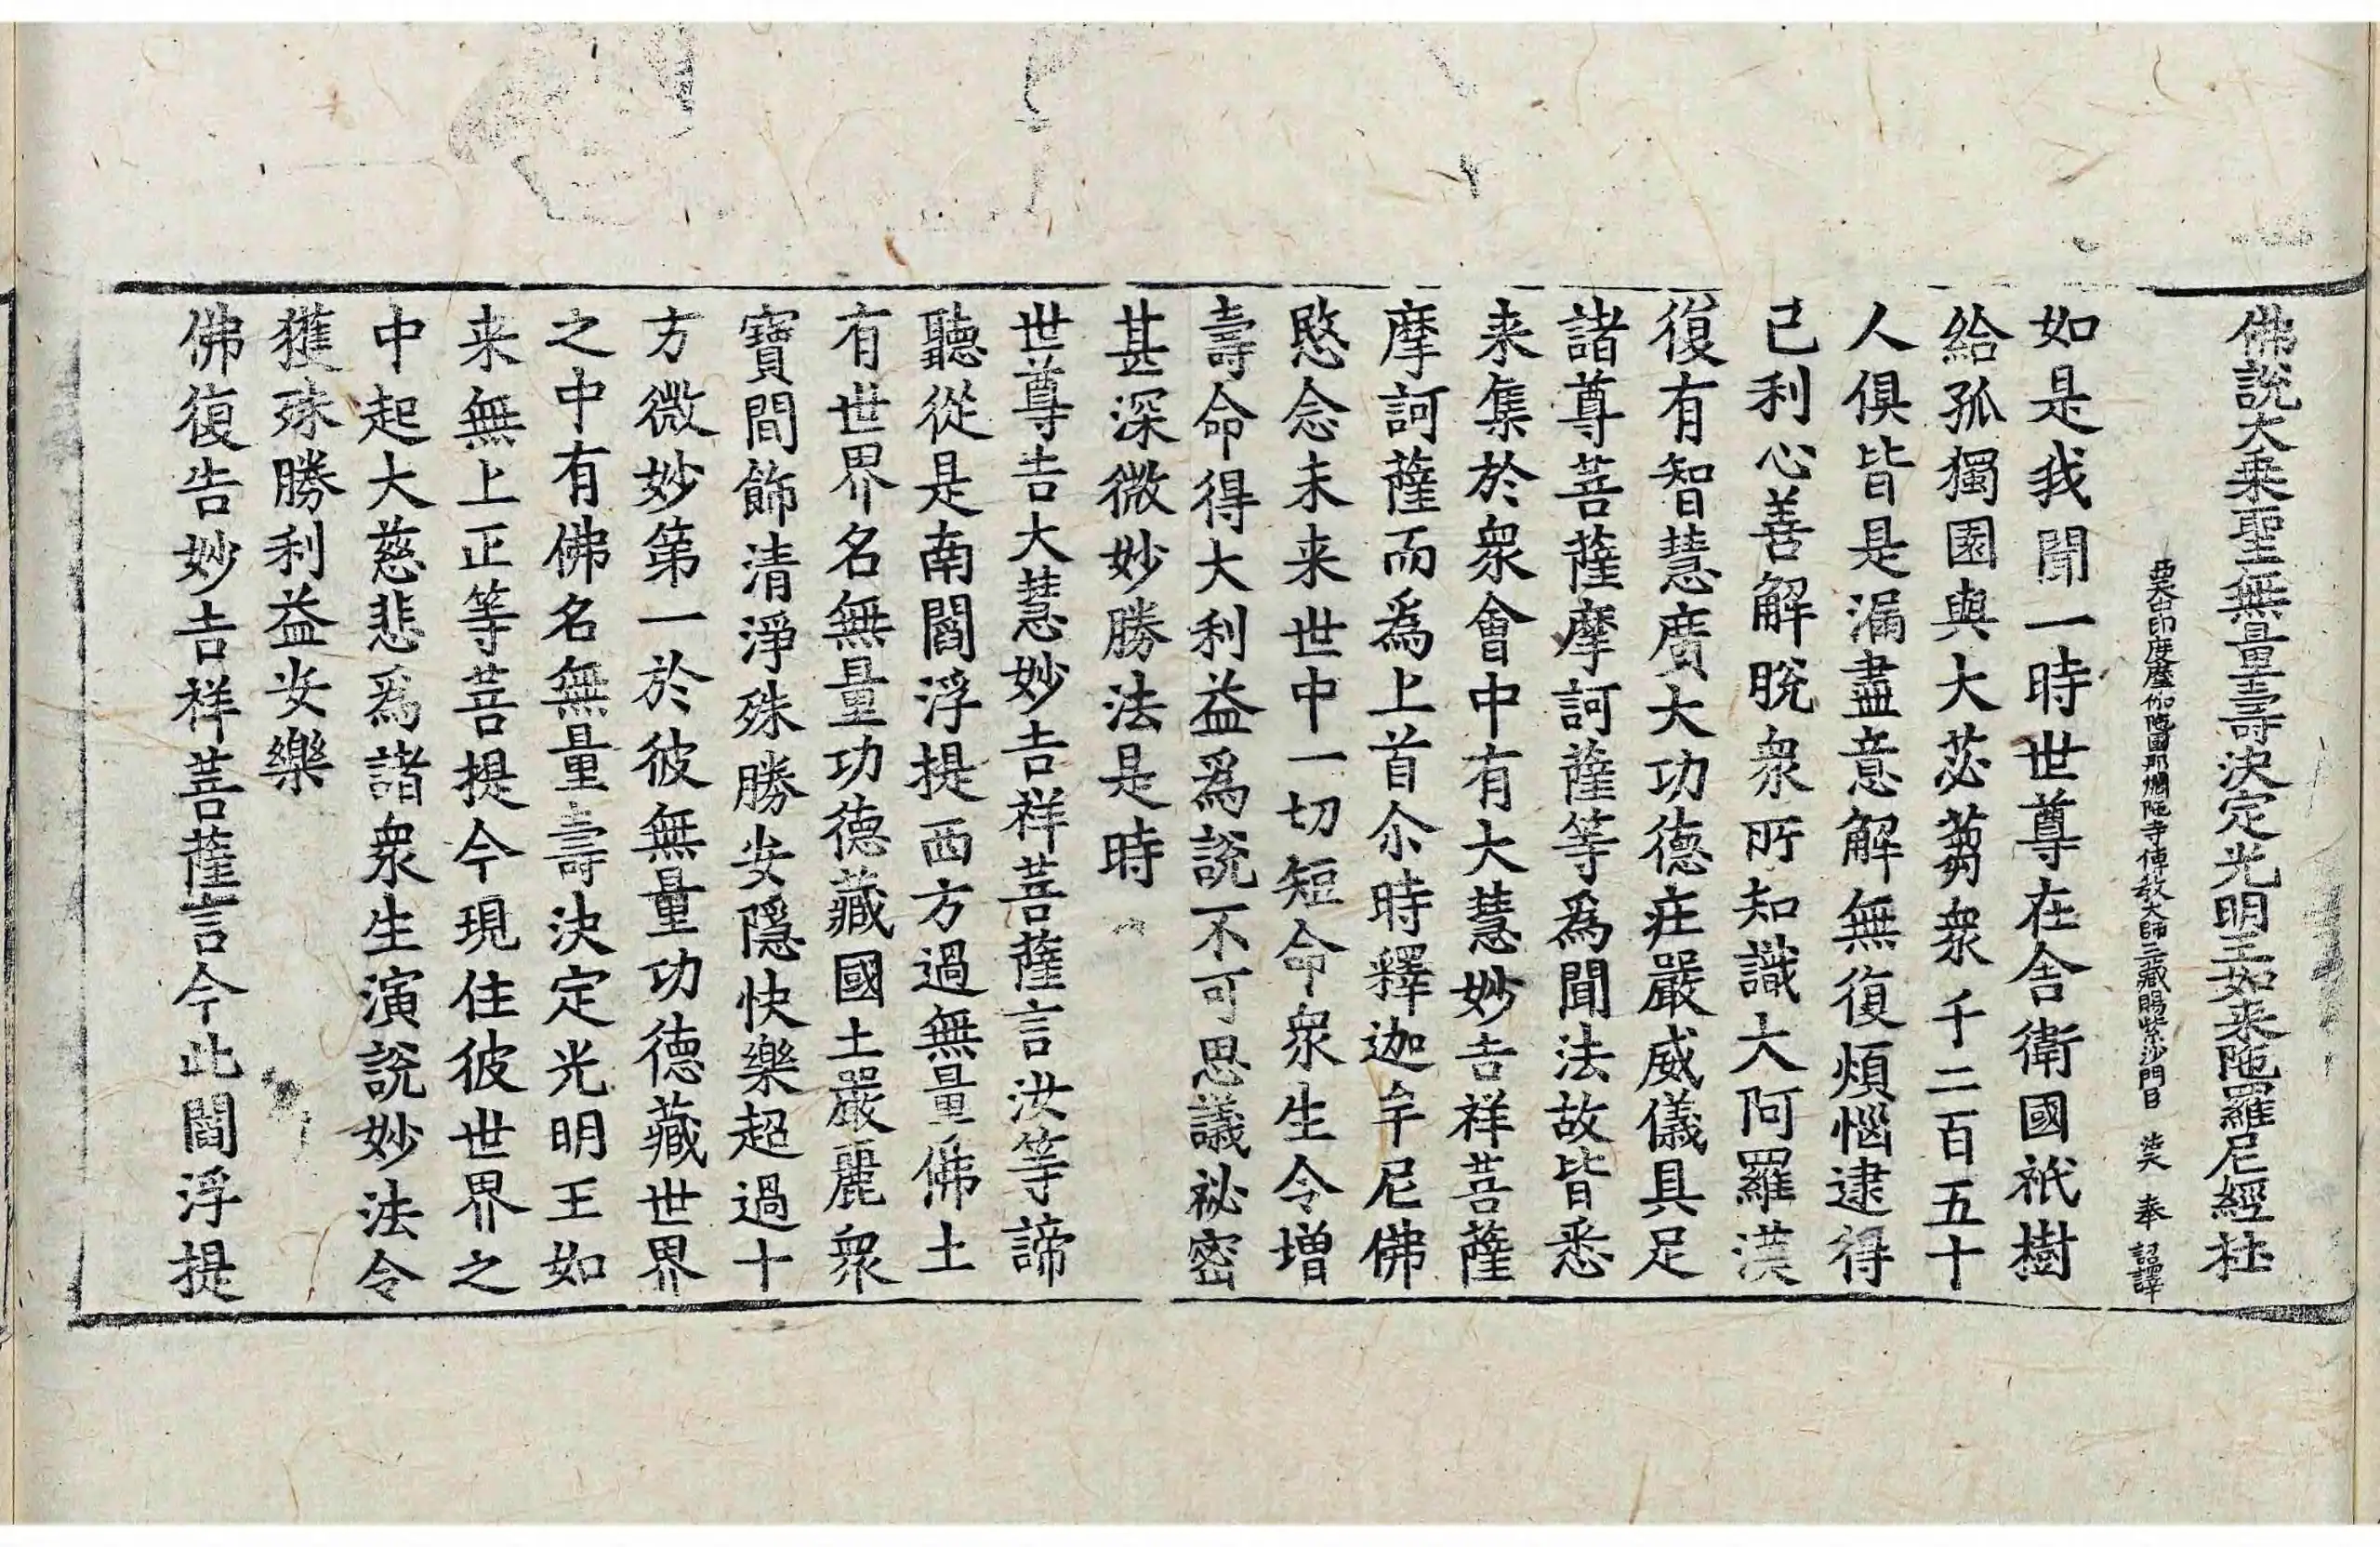 佛說大乘聖無量壽決定光明王如来陁羅尼經 杜
西天中印度摩伽陁國那爛陁寺傳教大師三藏賜紫沙門臣 法天 奉 詔譯
如是我聞一時世尊在舍衛國祇樹
給孤獨園與大苾蒭衆千二百五十
人俱皆是漏盡意解無復煩惱逮得
己利心善解脫衆所知識大阿羅漢
復有智慧廣大功德莊嚴威儀具足
諸尊菩薩摩訶薩等爲聞法故皆悉
来集於衆會中有大慧妙吉祥菩薩
摩訶薩而爲上首尒時釋迦牟尼佛
愍念未来世中一切短命衆生令增
壽命得大利益爲說不可思議祕密
甚深微妙勝法是時
世尊告大慧妙吉祥菩薩言汝等諦
聽從是南閻浮提西方過無量佛土
有世界名無量功德藏國土嚴麗衆
寶間飾清淨殊勝安隱快樂超過十
方微妙第一於彼無量功德藏世界
之中有佛名無量壽決定光明王如
来無上正等菩提今現住彼世界之
中起大慈悲爲諸衆生演說妙法令
獲殊勝利益安樂
佛復告妙吉祥菩薩言今此閻浮提